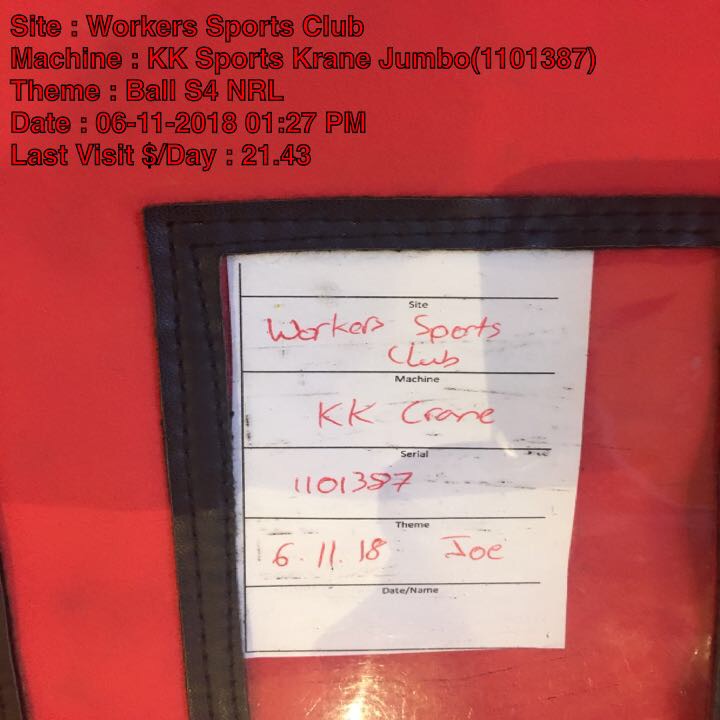 Site : Workers Sports Club
Machine : KK Sports Krane Jumbo(1101387)
Theme : Ball S4 NRL
Date : 06-11-2018 01:27 PM
Last Visit $/Day : 21.43
Site
Workers Sports
Club
Machine
KK Crane
Serial
1101387
Theme
6.11.18 Joe
Date/Name